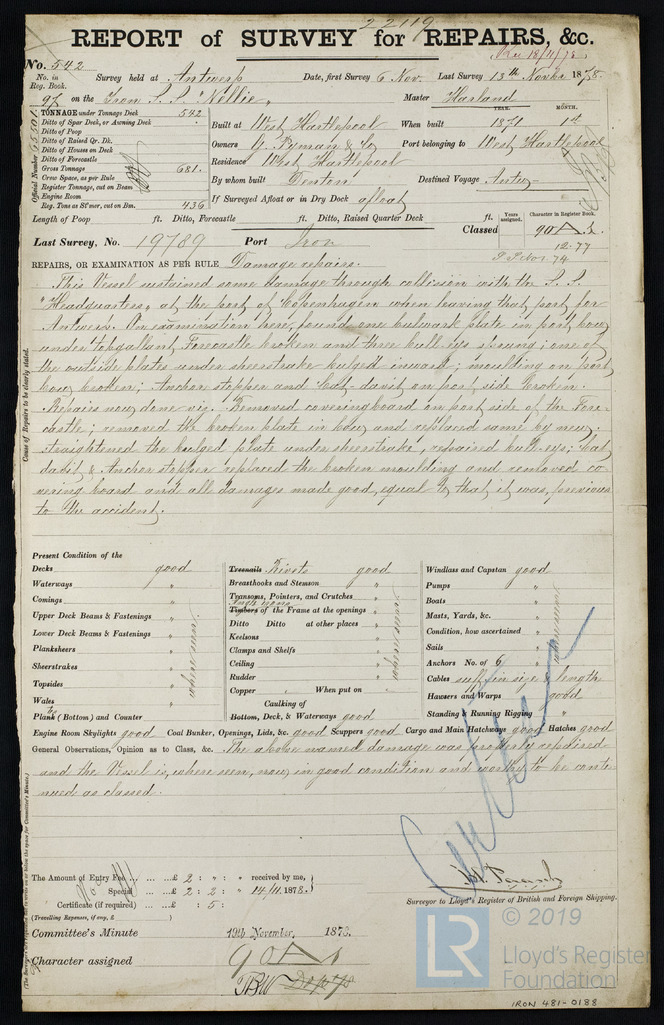 22119
REPORT of SURVEY for REPAIRS, &c.
Rec 18/11/78
No. 542
No. in Reg. Book. Survey held at Antwerp Date, first Survey 6 Nov. Last Survey 13th Novbr 1878.
97 on the Iron S.S. "Nellie" Master Harland
TONNAGE under Tonnage Deck 542
Ditto of Spar Deck, or Awning Deck
Ditto of Poop
Ditto of Raised Qr. Dk.
Ditto of Houses on Deck
Ditto of Forecastle
Gross Tonnage 681.
Crew Space, as per Rule
Register Tonnage, cut on Beam
Engine Room
Reg. Tons as St'mer, cut on Bm. 436
Official Number
YEAR. MONTH.
Built at West Hartlepool When built 1871
Owners Pyman & Co Port belonging to West Hartlepool
Residence West Hartlepool
By whom built Denton Destined Voyage Antw-
If Surveyed Afloat or in Dry Dock afloat
Length of Poop ft. Ditto, Forecastle ft. Ditto, Raised Quarter Deck ft.
Years assigned. Character in Register Book.
Classed 90 A 1
12.77
Last Survey, No. 19789 Port Iron
74
REPAIRS, OR EXAMINATION AS PER RULE Damage repairs.
This Vessel sustained some damage through collision with the S.S.
"Headquarters" at the port of Copenhagen when leaving that port for
Antwerp. On examination here, found one bulwark plate in port bow
under topgallant Forecastle broken and three bull-eys ; one of
the outside plates under sheerstrake bulged inward; moulding on port
bow broken; Anchor stopper and Cat-davit on port side broken.
Repairs now done viz. Removed coveringboard on port side of the Fore-
castle; removed the broken plate in bow and replaced same by new;
straightened the bulged plate under sheerstrake, repaired bull-eys; Cat
davit & Anchor stopper replaced the broken moulding and removed co-
vering board and all damages made good, equal to that it was, previous
to the accident.
Cause of Repairs to be clearly stated.
Present Condition of the
Decks good
Waterways "
Comings "
Upper Deck Beams & Fastenings "
Lower Deck Beams & Fastenings "
Planksheers "
Sheerstrakes "
Topsides "
Wales "
Plank (Bottom) and Counter
where seen
Treenails Rivets good
Breasthooks and Stemson "
Transoms, Pointers, and Crutches "
Angle irons
Timbers of the Frame at the openings "
Ditto Ditto at other places "
Keelsons "
Clamps and Shelfs "
Ceiling "
Rudder "
Copper " When put on "
Caulking of
Bottom, Deck, & Waterways good
where seen
Windlass and Capstan good
Pumps "
Boats "
Masts, Yards, &c. "
Condition, how ascertained "
Sails "
Anchors No. of 6 "
Cables suff in size & length
Hawsers and Warps good
Standing & Running Rigging "
Engine Room Skylights good Coal Bunker, Openings, Lids, &c. good Scuppers good Cargo and Main Hatchways good Hatches good
General Observations, Opinion as to Class, &c. The above named damage was properly repaired
and the Vessel is, where seen, now in good condition and worthy to be conti-
nued as classed.
The Amount of Entry Fee ... ... £ 2 : " : " received by me,
Special ... ... £ 2 : 2 : " 14/11 1878.
Certificate (if required) .. £ : 5 :
(Travelling Expenses, if any, £ )
Surveyor to Lloyd's Register of British and Foreign Shipping.
Committee's Minute 19th November, 1878.
Character assigned 90 A 1
© 2019
LR
Lloyd's Register
Foundation
IRON 481-0188